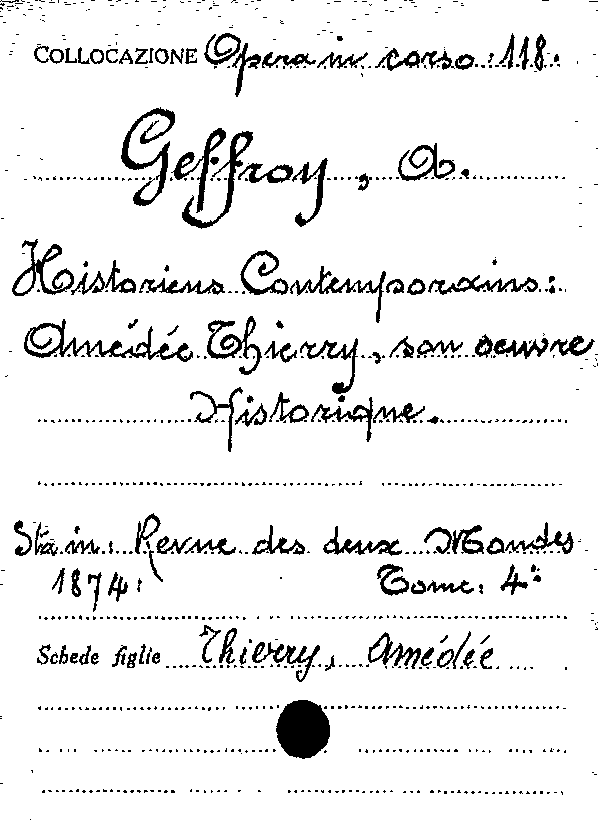 COLLOCAZIONE Opera in corso. 118.
Geffroy, A.
Historiens Contemporains:
Amédée Thierry, son oeuvre
Historique.
Sta in: Revue des deux Mondes
1874: Tome: 4°:
Schede figlie Thierry, Amédée